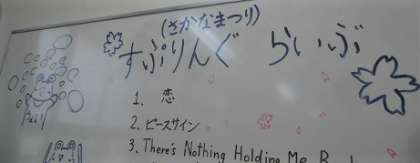 (さかなまつり)
すぷりんぐ らいぶ
1. 恋
2. ピースサイン
3. There's Nothing Holding Me